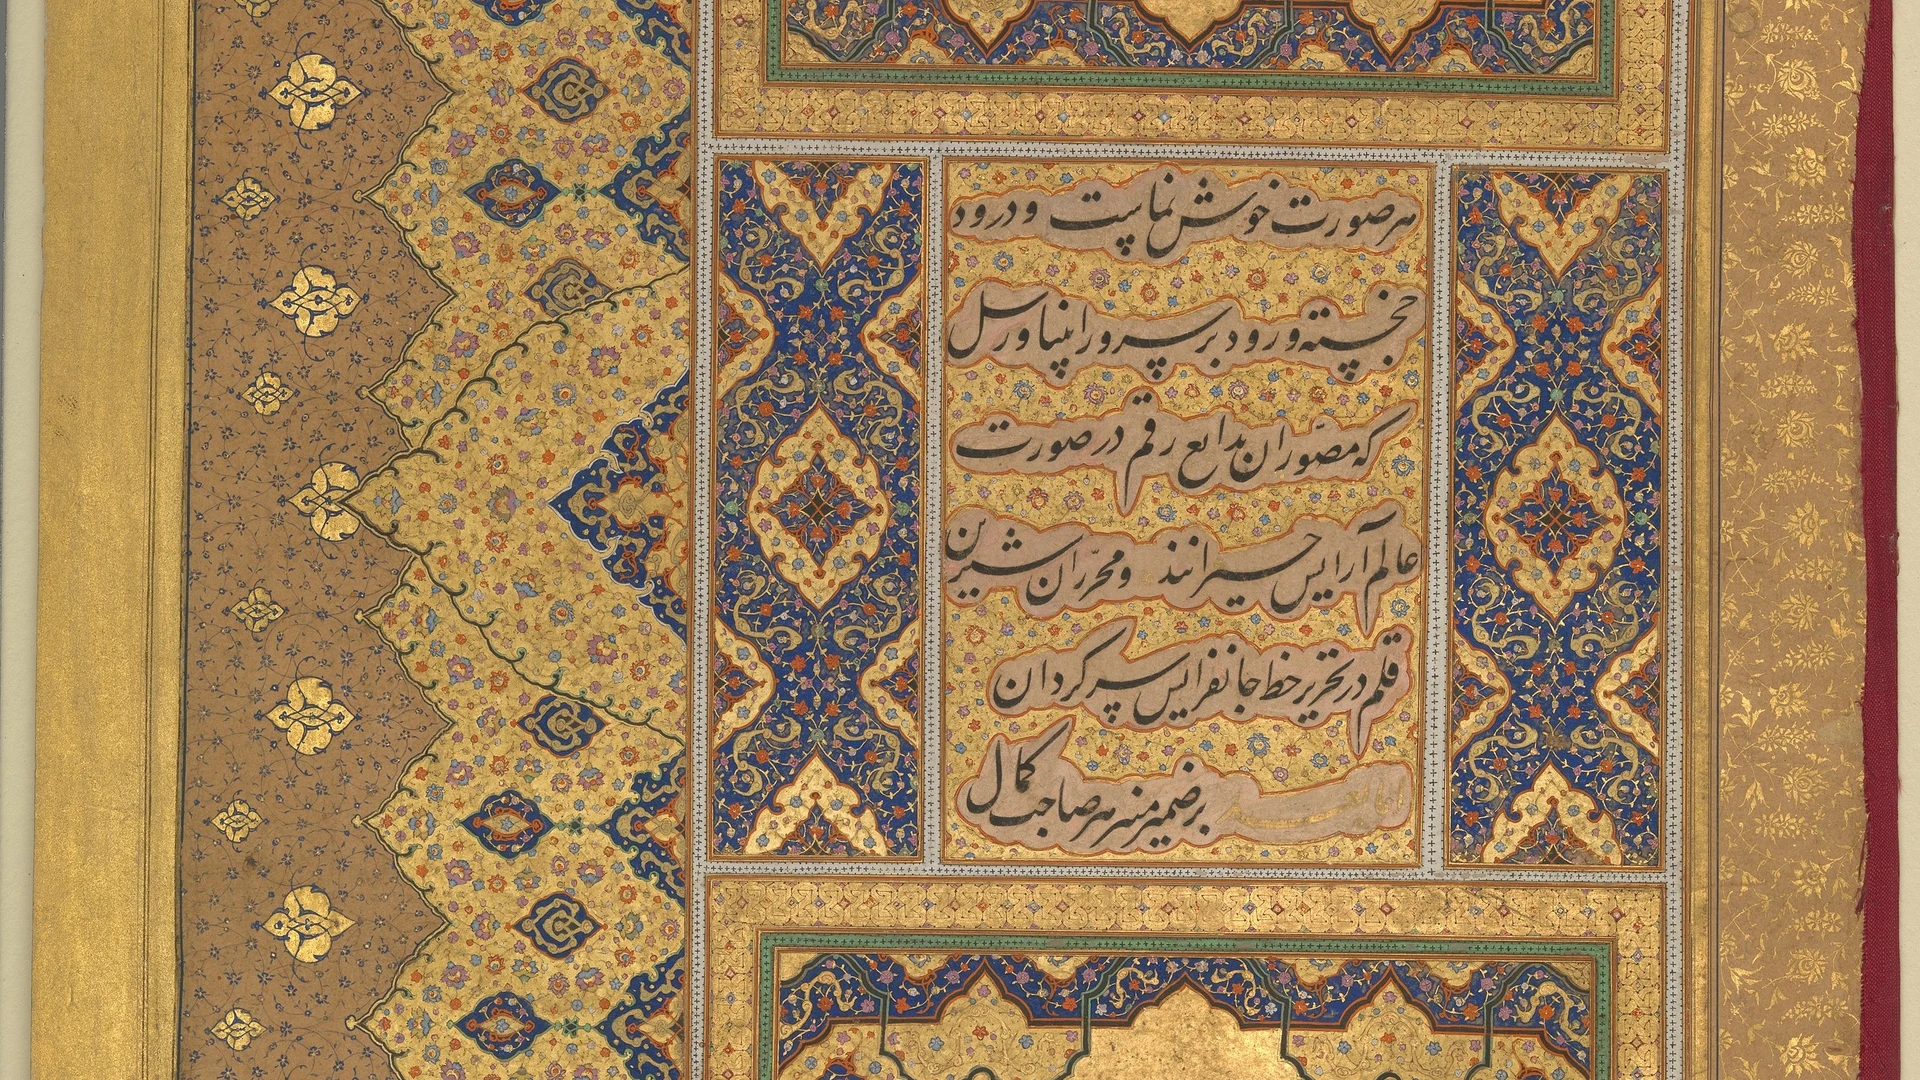 هر صورت خوش نماست و درود
خجسته ورود بر سرور انبیا و رسل
که مصوّران بدایع رقم در صورت
عالم آرایش حیرانند و محرّران شیرین
قلم در تحریر خط جانفزایش سرگردان
اما بعد بر ضمیر منیر هر صاحب کمال